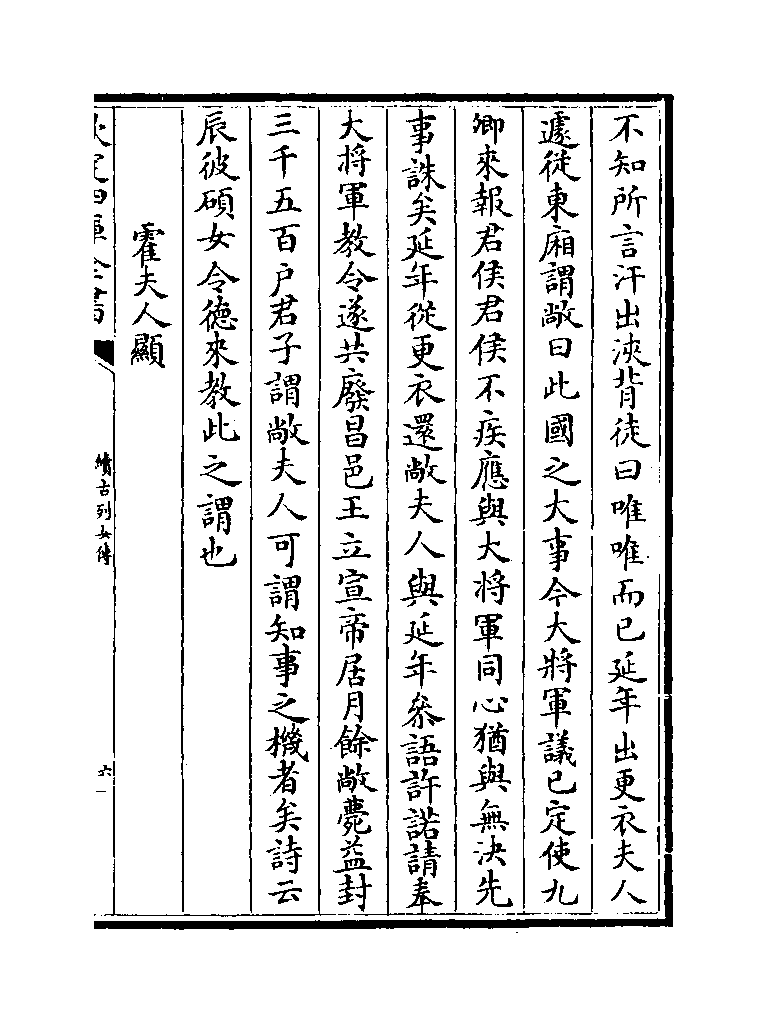 不知所言汗出浹背徒曰唯唯而已延年出更衣夫人
遽從東廂謂敞曰此國之大事今大將軍議已定使九
卿來報君侯君侯不疾應與大將軍同心猶與無決先
事誅矣延年從更衣還敞夫人與延年叅語許諾請奉
大將軍教令遂共廢昌邑王立宣帝居月餘敞薨益封
三千五百户君子謂敞夫人可謂知事之機者矣詩云
辰彼碩女令德來教此之謂也
霍夫人顯
欽定四庫全書
續古列女傳
六